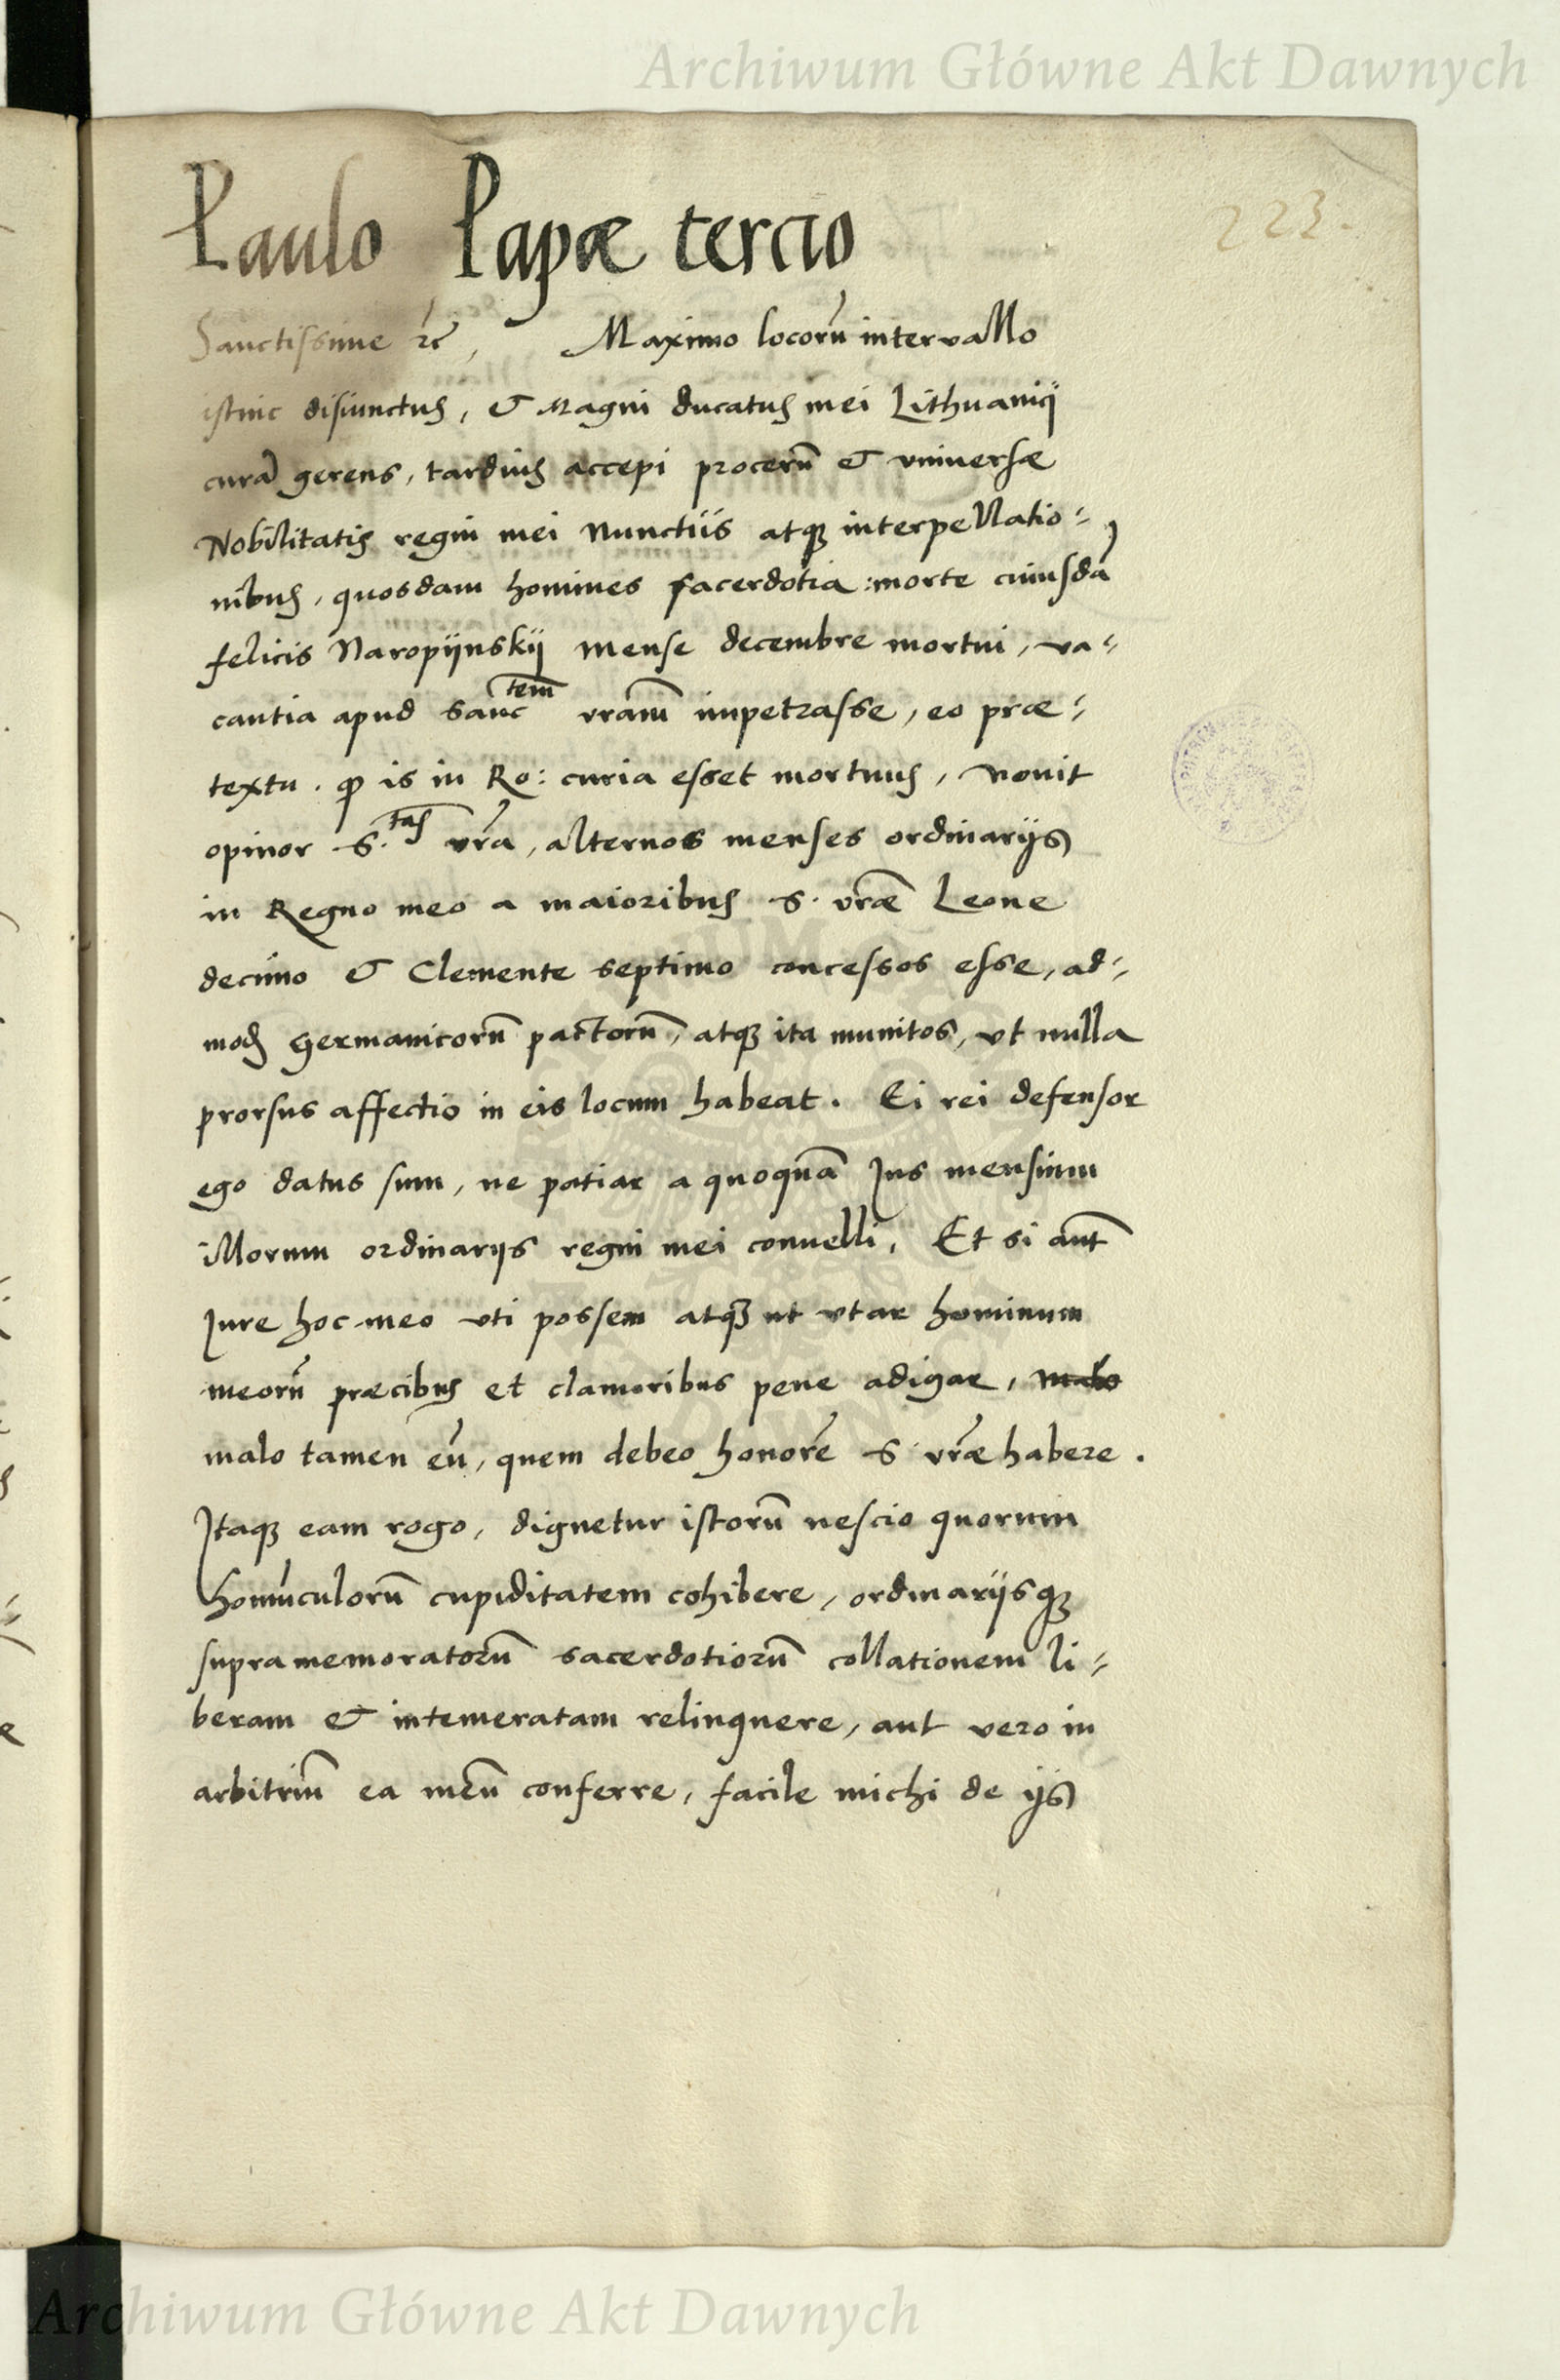 Archiwum Główne Akt Dawnych
223.
Paulo Papæ tercio
Sanctissime rc̃, Maximo locorũ intervallo
istinc disiunctus, & Magni ducatus mei Lithuanię
curã gerens, tardius accepi procerũ & vniversæ
Nobilitatis regni mei Nunctiis atq3 interpellatio⸗
nibus, quosdam homines sacerdotia :morte cuiusdã
felicis Naropijnskij mense decembre mortui, va⸗
cantia apud sanctem vram̃ impetrasse, eo præ⸗
textu. ꝙ is in Ro: curia esset mortuus, Novit
opinor S.tas vrã, alternos menses ordinarijs
in Regno meo a maioribus S. vræ̃ Leone
decimo & Clemente septimo concessos esse, ad⸗
modũ Germanicorũ pactorũ, atq3 ita munitos, vt nulla
prorsus affectio in eis locum habeat. Ei rei defensor
ego datus sum, ne patiar a quoquã Jus mensium
illorum ordinarijs regni mei convelli, Et si aut̃
Jure hoc meo vti possem atq3 ut vtar hominum
meorũ præcibus et clamoribus pene adigar, malo
malo tamen eũ, quem debeo honorẽ S vræ̃ habere.
Itaq3 eam rogo, dignetur istorũ nescio quorum
homũculorũ cupiditatem cohibere, ordinarijsq3
supramemoratorũ sacerdotiorũ collationem li⸗
beram & intemeratam relinquere, aut vero in
arbitriũ ea meũ conferre, facile michi de ijs
Archiwum Główne Akt Dawnych